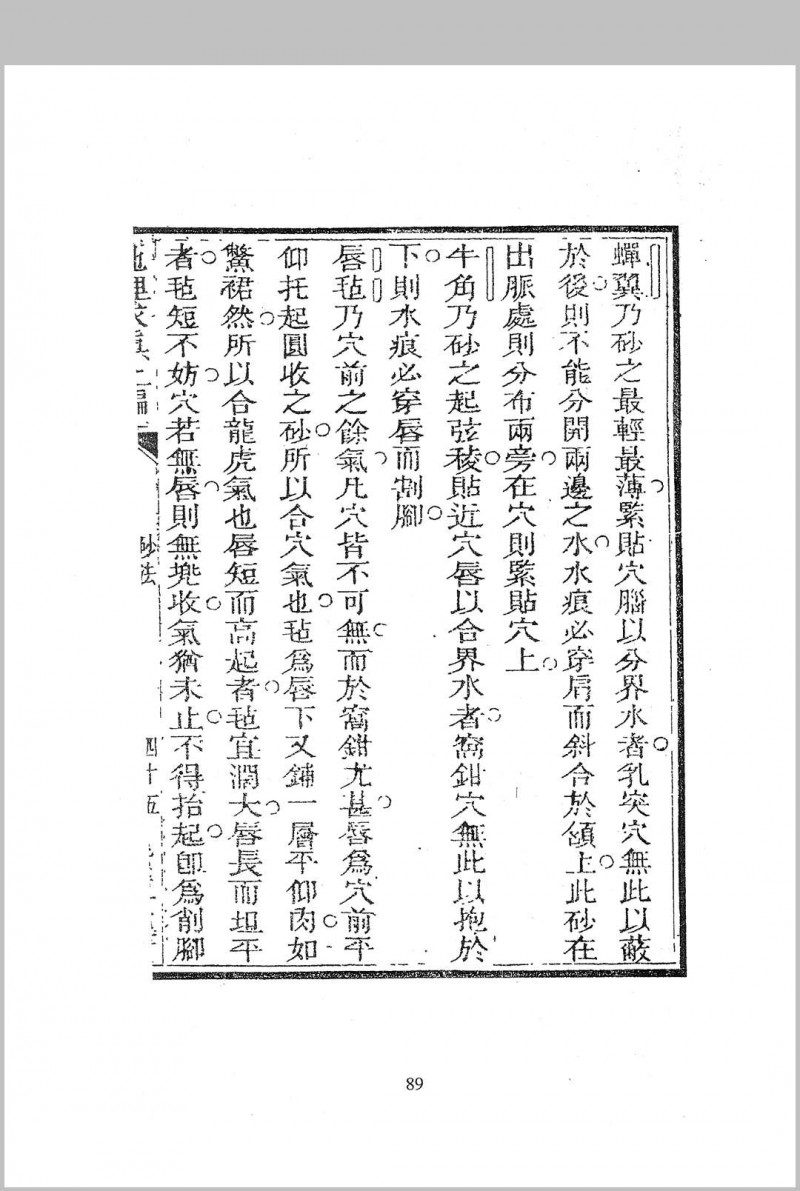 蟬翼乃砂之最輕最薄緊貼穴腦以分界水者乳突穴無此以蔽
於後則不能分開兩邊之水水痕必穿肩而斜合於頷上此砂在
出脈處則分布兩旁在穴則緊貼穴上
牛角乃砂之起弦稜貼近穴唇以合界水者窩鉗穴無此以抱於
下則水痕必穿唇而割腳
唇毡乃穴前之餘氣凡穴皆不可無而於窩鉗尤甚唇為穴前平
仰托起圓收之砂所以合穴氣也毡為唇下又鋪一層平仰肉如
鱉裙然所以合龍虎氣也唇短而高起者毡宜濶大唇長而坦平
者毡短不妨穴若無唇則無兠收氣猶未止不得抬起卽為削腳
砂法
四十五
89